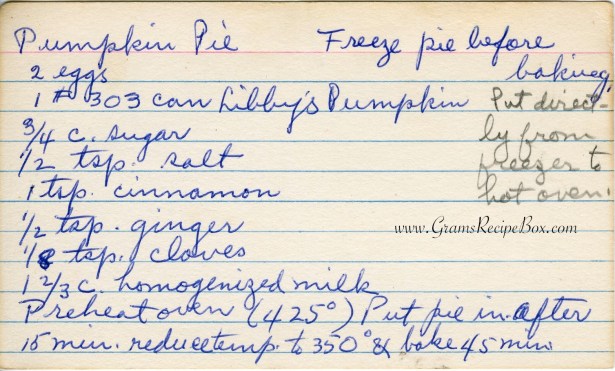 Pumpkin Pie Freeze pie before
2 eggs baking.
1 # 303 can Libby's Pumpkin Put direct-
3/4 c. sugar ly from
1/2 tsp. salt freezer to
1 tsp. cinnamon hot oven!
1/2 tsp. ginger
www.GramsRecipeBox.com
1/8 tsp. cloves
1 2/3 c. homogenized milk
Preheat oven (425°) Put pie in. After
15 min. reduce temp. to 350° & bake 45 min